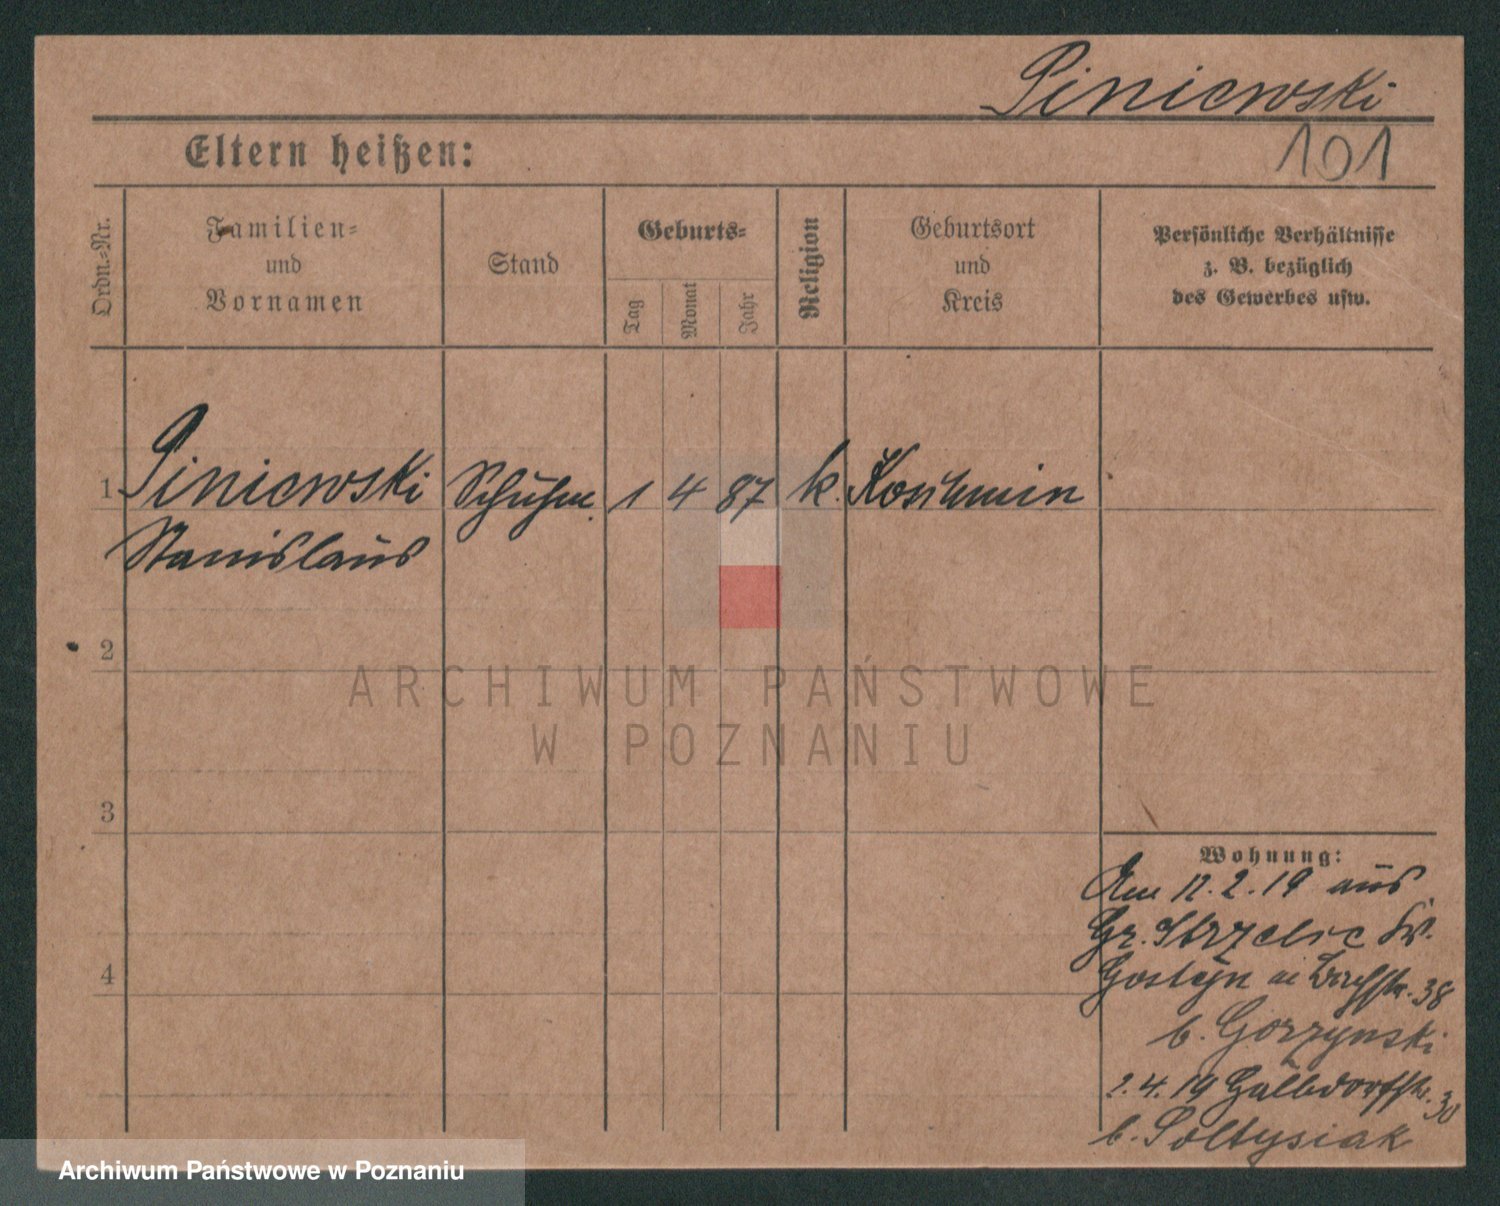 Piniewski
101
Eltern heißen:
Ordn.-Nr.
Familien-
und
Vornamen
Stand
Geburts-
Tag
Monat
Jahr
Religion
Geburtsort
und
Kreis
Persönliche Verhältnisse
z. B. bezüglich
des Gewerbes usw.
1 Piniewski Schuhm. 1 4 87 k. Koschmin
Stanislaus
2
3
4
ARCHIWUM PAŃSTWOWE
W POZNANIU
Wohnung:
Am 12.2.19 aus
Gr. Strzelce Kr.
Gostyn 38
b. Gorzynski
2.4.19 30
b. Soltysiak
Archiwum Państwowe w Poznaniu